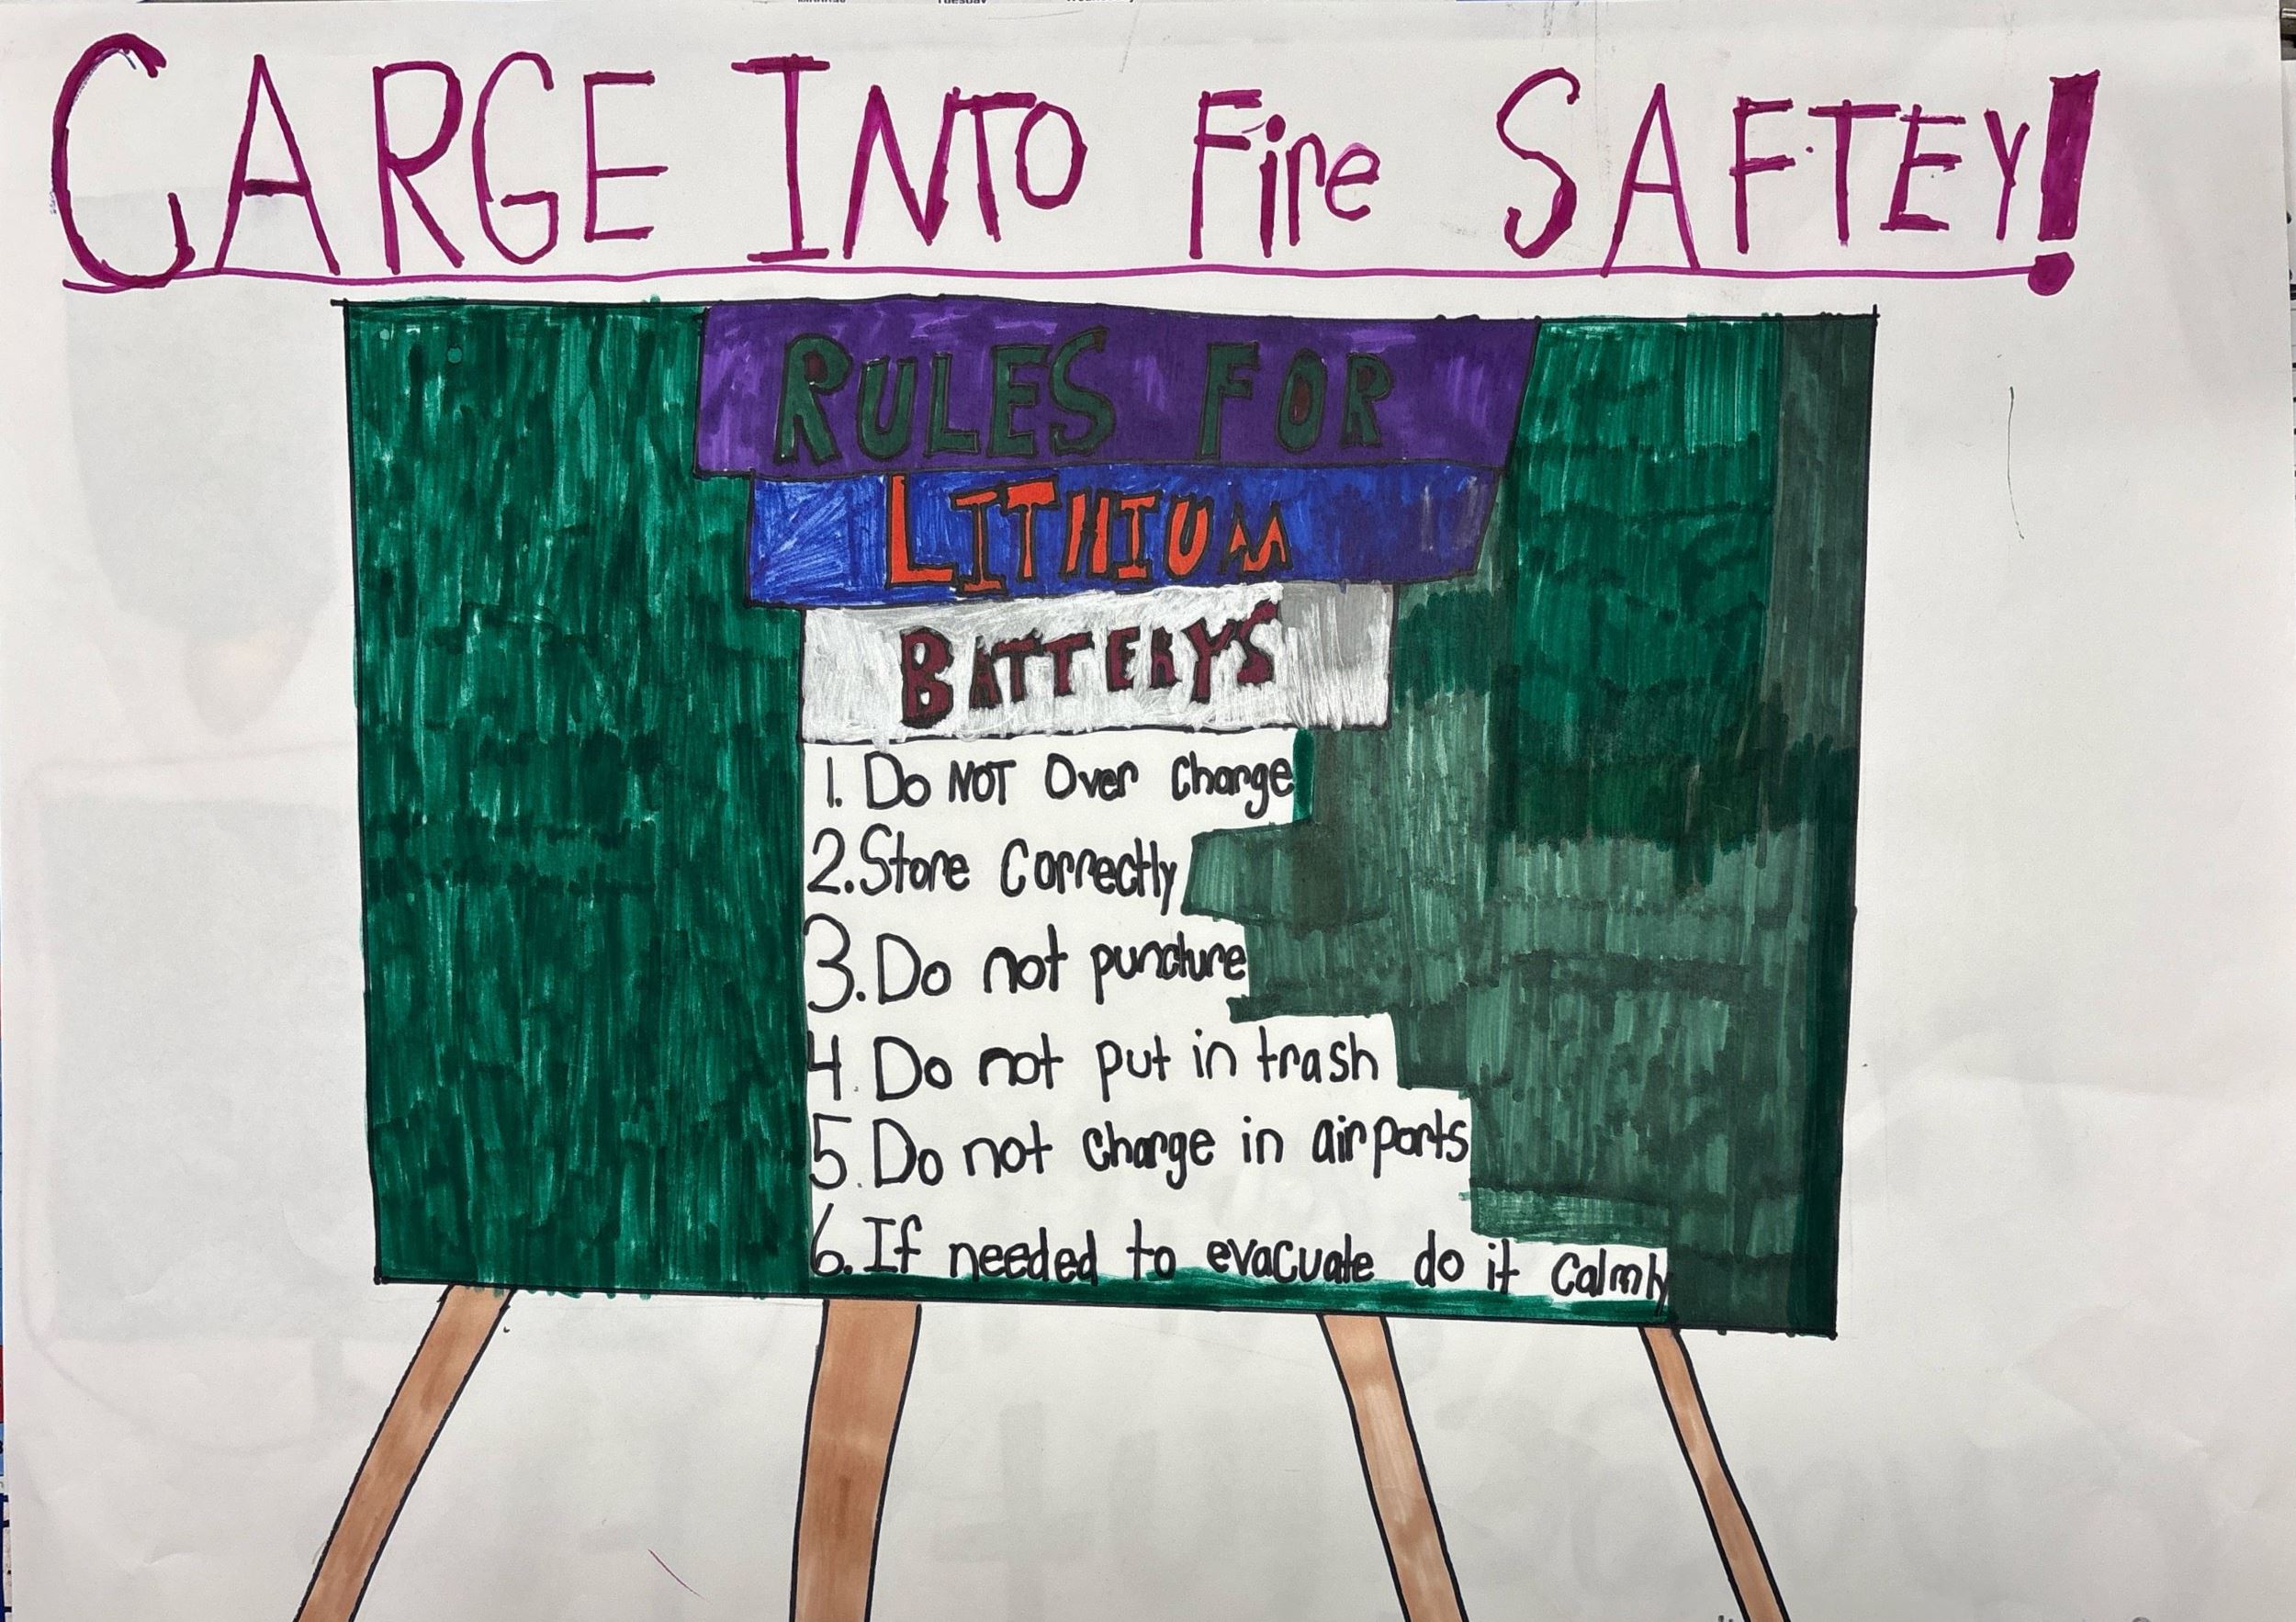 CARGE INTO Fire SAFTEY!
RULES FOR
LITHIUM
BATTERYS
1. Do NOT Over Charge
2. Store Correctly
3. Do not puncture
4. Do not put in trash
5. Do not charge in airports
6. If needed to evacuate do it Calmly